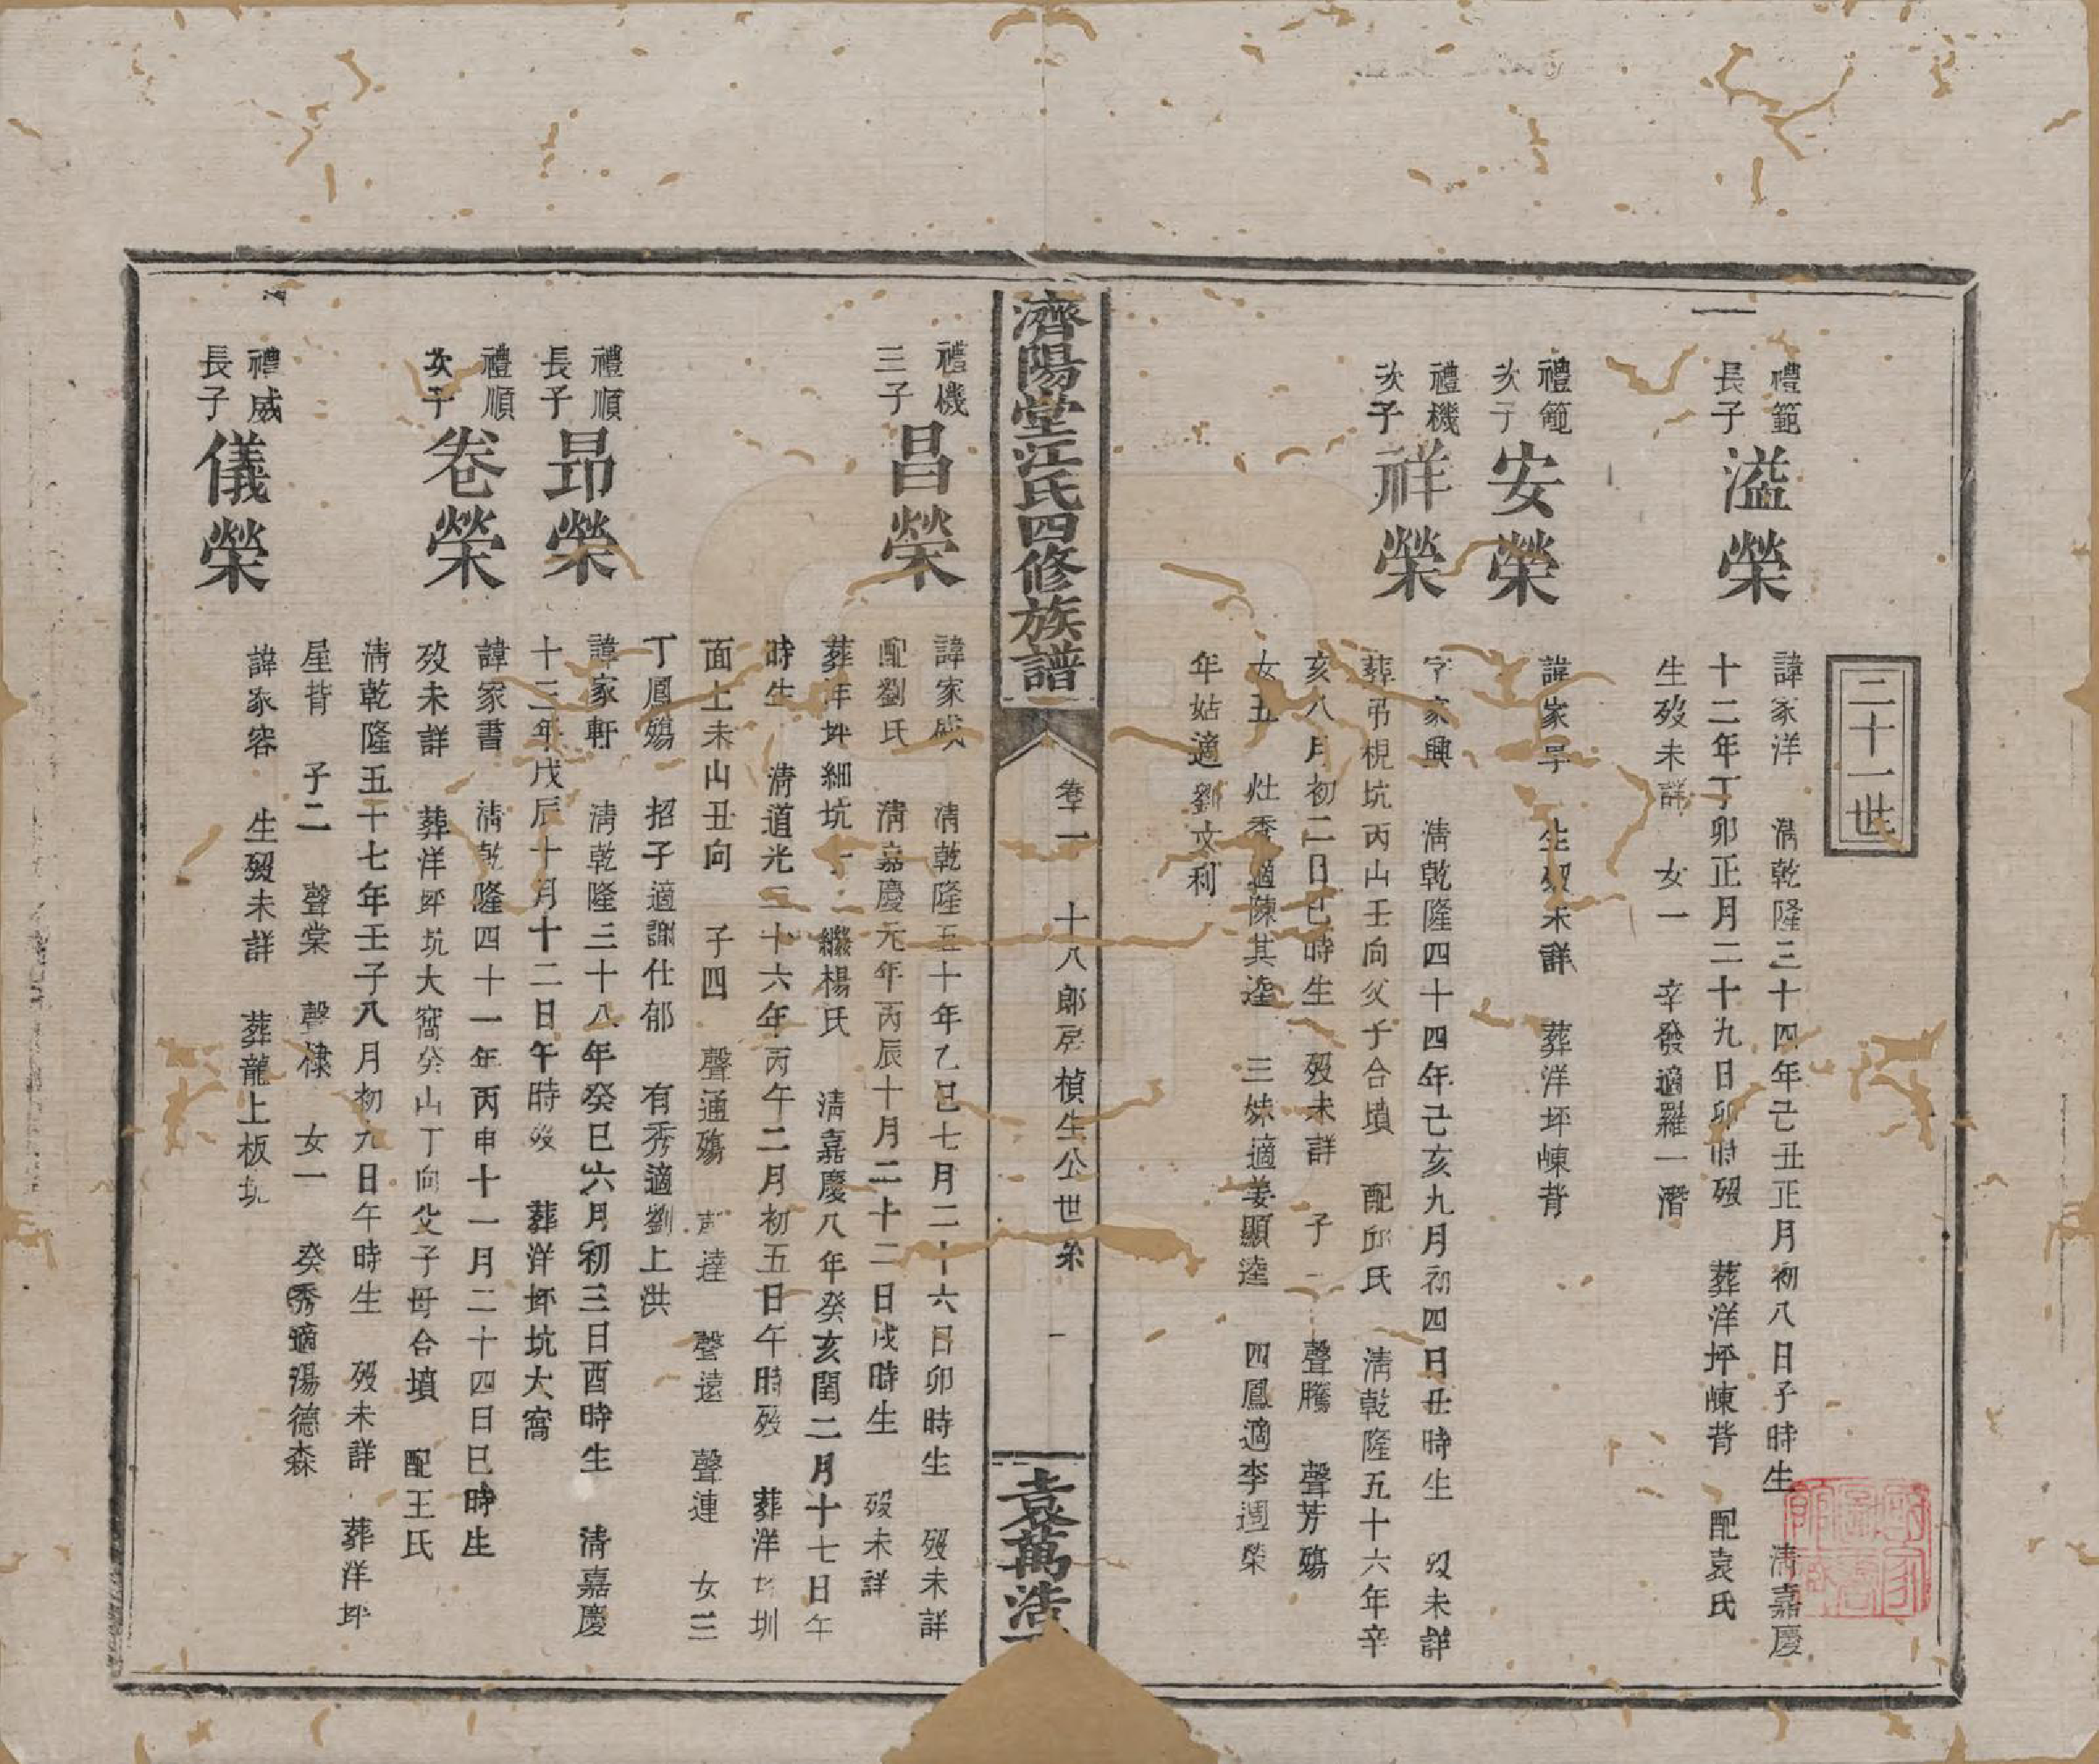 二十一世
禮範長子 溢榮
諱家洋 清乾隆三十四年己丑正月初八日子時生 清嘉慶
十二年丁卯正月二十九日卯時歿 葬洋坪崠背 配袁氏
生歿未詳 女一 辛發適羅一潛
禮範次子 安榮
諱家早 生歿未詳 葬洋坪崠背
禮機次子 祥榮
字家興 清乾隆四十四年己亥九月初四日丑時生 歿未詳
葬弔梘坑丙山壬向父子合墳 配邱氏 清乾隆五十六年辛
亥八月初二日巳時生 歿未詳 子二 聲騰 聲芳殤
女五 灶秀適陳其逵 三妹適姜顯逵 四鳳適李週榮
年姑適劉文利
濟陽堂江氏四修族譜
卷十一 十八郎房楨生公世系 一
袁萬浩
禮機三子 昌榮
諱家成 清乾隆五十年乙巳七月二十六日卯時生 歿未詳
配劉氏 清嘉慶元年丙辰十月二十二日戌時生 歿未詳
葬洋坪細坑 繼楊氏 清嘉慶八年癸亥閏二月十七日午
時生 清道光二十六年丙午二月初五日午時歿 葬洋 圳
面上未山丑向 子四 聲通殤 聲達 聲遠 聲連 女三
丁鳳殤 招子適謝仕郁 有秀適劉上洪
禮順長子 昂榮
諱家軒 清乾隆三十八年癸巳六月初三日酉時生 清嘉慶
十三年戊辰十月十二日午時歿 葬洋坪坑大窩
禮順次子 卷榮
諱家書 清乾隆四十一年丙申十一月二十四日巳時生
歿未詳 葬洋坪坑大窩癸山丁向父子母合墳 配王氏
清乾隆五十七年壬子八月初九日午時生 歿未詳 葬洋坪
星背 子二 聲棠 聲棣 女一 癸秀適湯德森
禮威長子 儀榮
諱家容 生歿未詳 葬龍上板坑